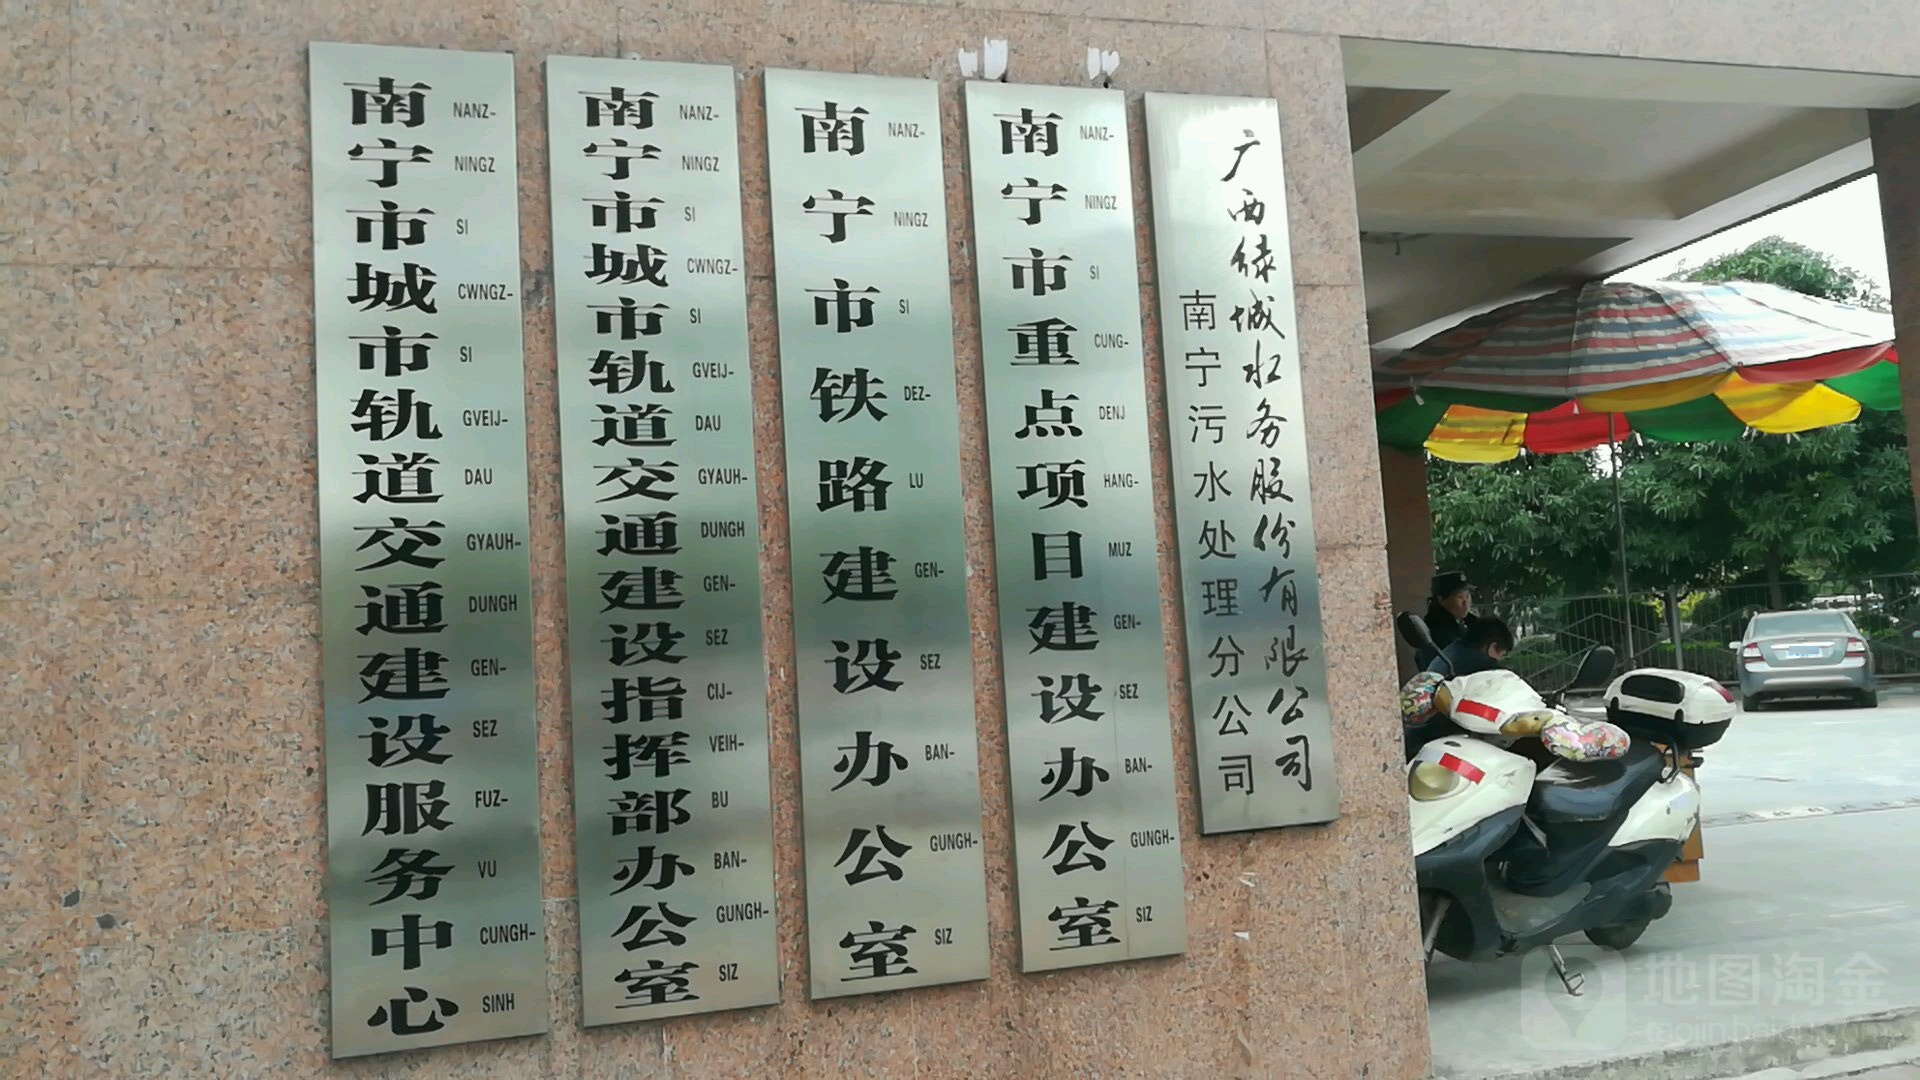 南宁市城市轨道交通建设服务中心
NANZ-NINGZ SI CWNGZ-SI GVEIJ-DAU GYAUH-DUNGH GEN-SEZ FUZ-VU CUNGH-SINH
南宁市城市轨道交通建设指挥部办公室
NANZ-NINGZ SI CWNGZ-SI GVEIJ-DAU GYAUH-DUNGH GEN-SEZ CIJ-VEIH-BU BAN-GUNGH-SIZ
南宁市铁路建设办公室
NANZ-NINGZ SI DEZ-LU GEN-SEZ BAN-GUNGH-SIZ
南宁市重点项目建设办公室
NANZ-NINGZ SI CUNG-DENJ HANG-MUZ GEN-SEZ BAN-GUNGH-SIZ
广西绿城水务股份有限公司
南宁污水处理分公司
地图淘金
taojin.baidu.com